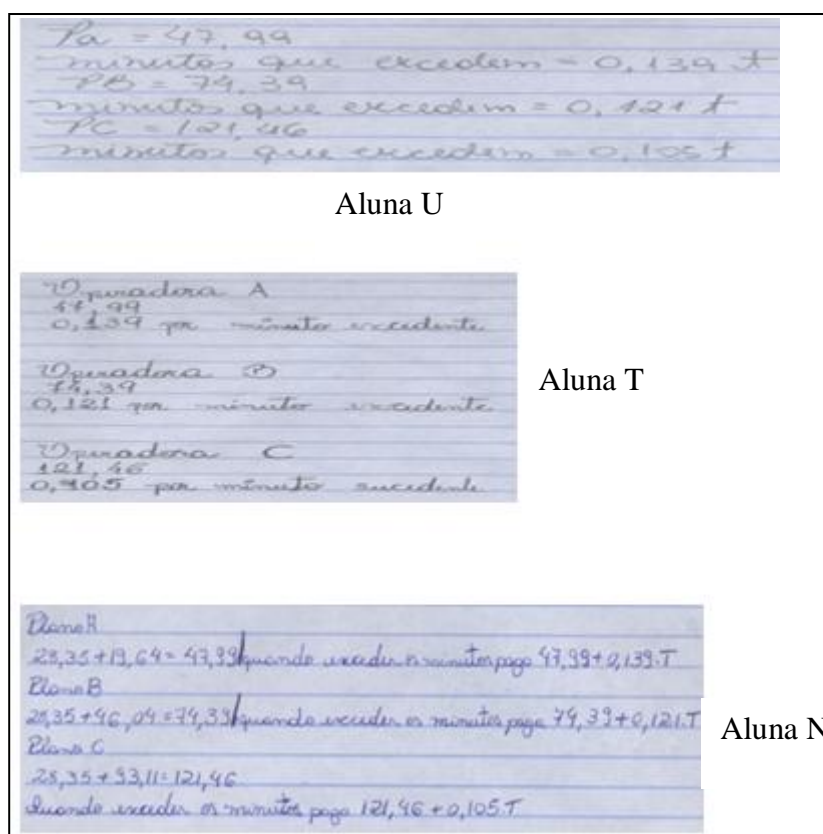 Pa = 47,99
minutos que excedem = 0,139 t
PB = 74,39
minutos que excedem = 0,121 t
PC = 121,46
minutos que excedem = 0,105 t
Aluna U
Operadora A
47,99
0,139 por minuto excedente
Operadora B
74,39
0,121 por minuto excedente
Operadora C
121,46
0,105 por minuto sucedente
Aluna T
Plano A
28,35 + 19,64 = 47,99 quando exceder os minutos pago 47,99 + 0,139.T
Plano B
28,35 + 46,04 = 74,39 quando exceder os minutos pago 74,39 + 0,121.T
Plano C
28,35 + 93,11 = 121,46
Quando exceder os minutos pago 121,46 + 0,105.T
Aluna N